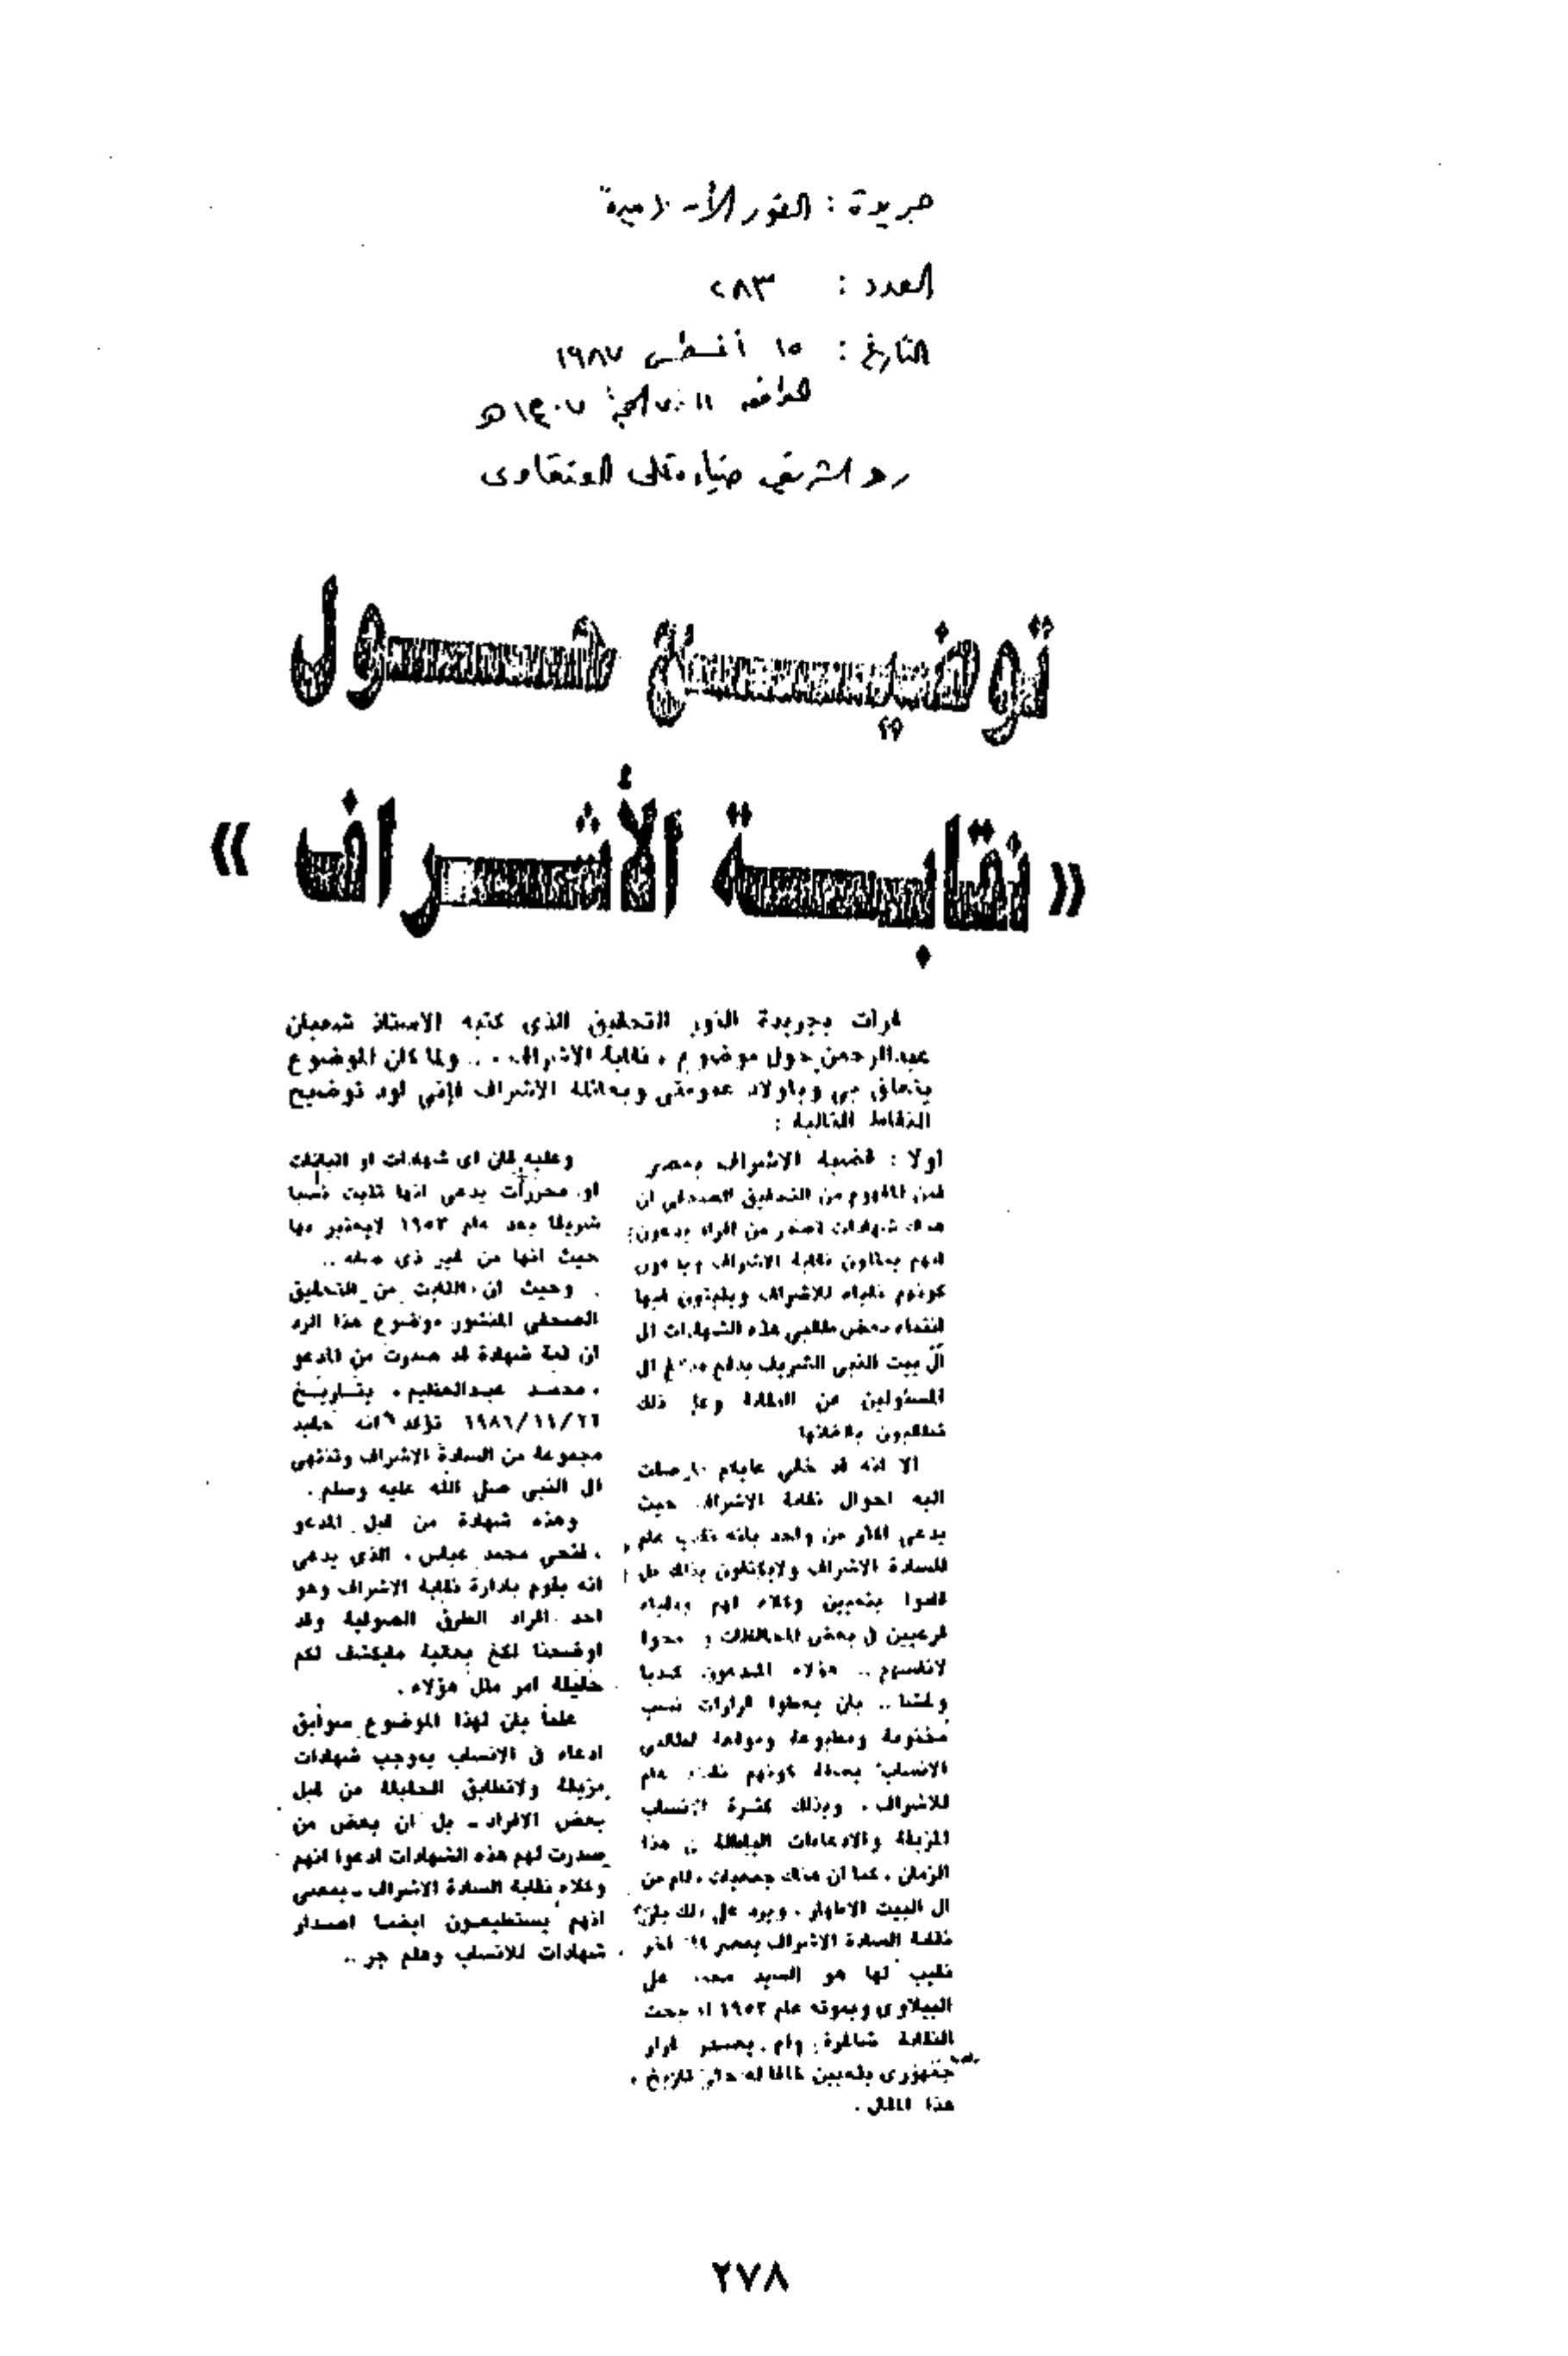 جريدة : النور الأسلامية
العدد : ٢٨٣
التاريخ : ١٥ أغسطس ١٩٨٧
الموافق ١١ ذى الحجة ١٤٠٧هـ
رد الشريف ضياء العنقاوى
توضيـــــح حـــــول
« نقابـــــة الأشـــــراف »
قرات بجريدة النور التحقيق الذى كتبه الاستاذ شعبان
عبدالرحمن حول موضوع « نقابة الاشراف » .. ولما كان الموضوع
يتعلق بى وباولاد عمومتى وبعائلة الاشراف فإنى اود توضيح
النقاط التالية :
اولا : قضية الاشراف بمصر
فمن المفهوم من التحقيق الصحفى ان
هناك شهادات تصدر من افراد يدعون
انهم يمثلون نقابة الاشراف
كونهم نقباء للاشراف ويثبتون فيها
انتماء بعض طالبى هذه الشهادات الى
آل بيت النبى الشريف بدفع مبالغ الى
المسئولين عن النقابة وعلى ذلك
تطالبون بالغائها
الا انه قد خفى عليكم ما وصلت
اليه احوال نقابة الاشراف حيث
يدعى اكثر من واحد بانه نقيب عام
للسادة الاشراف ولايكتفون بذلك بل
قاموا بتعيين وكلاء لهم ونقباء
فرعيين فى بعض المحافظات و سمحوا
لانفسهم .. هؤلاء المدعون كذبا
.. بان يعطوا قرارات نسب
مختومة ومطبوعة وموقعة لطالبى
الانساب بصفة كونهم نقباء عام
للاشراف ، وبذلك كثرة الانساب
المزيفة والادعاءات الباطلة فى هذا
الزمان ، كما ان هناك جمعيات
ال البيت الاطهار ، ويرد على ذلك بان
نقابة السادة الاشراف بمصر كان اخر
نقيب لها هو السيد محمد على
الببلاوى وبموته عام ١٩٥٣ اصبحت
النقابة شاغرة ولم يصدر قرار
جمهورى بتعيين خلفا له حتى تاريخ
هذا المقال .
وعليه فان اى شهادات او اثباتات
او محررات يدعى انها تثبت نسبا
شريفا بعد عام ١٩٥٣ لايعتبر بها
حيث انها من غير ذى صفه ..
وحيث ان الثابت من التحقيق
الصحفى المنشور موضوع هذا الرد
ان ثمة شهادة قد صدرت من المدعو
« محمد عبدالعظيم » بتاريخ
١٩٨٦/١١/٢٦ تؤكد انه حفيد
مجموعة من السادة الاشراف وتنتهى
الى النبى صلى الله عليه وسلم .
وهذه شهادة من قبل المدعو
« فتحى محمد عباس » الذى يدعى
انه يقوم بادارة نقابة الاشراف وهو
احد افراد الطرق الصوفية وقد
اوضحنا لكم بعاليه مايكشف لكم
حقيقة امر مثل هؤلاء .
علما بان لهذا الموضوع سوابق
ادعاء فى الانساب بموجب شهادات
مزيفة ولاتطابق الحقيقة من قبل
بعض الافراد ـ بل ان بعض من
صدرت لهم هذه الشهادات ادعوا انهم
وكلاء نقابة السادة الاشراف ـ بمعنى
انهم يستطيعون ايضا اصدار
شهادات للانساب وهلم جر ..
٢٧٨